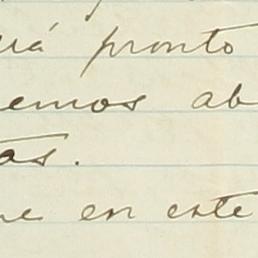 rá pronto
emos ab
as.
ue en este